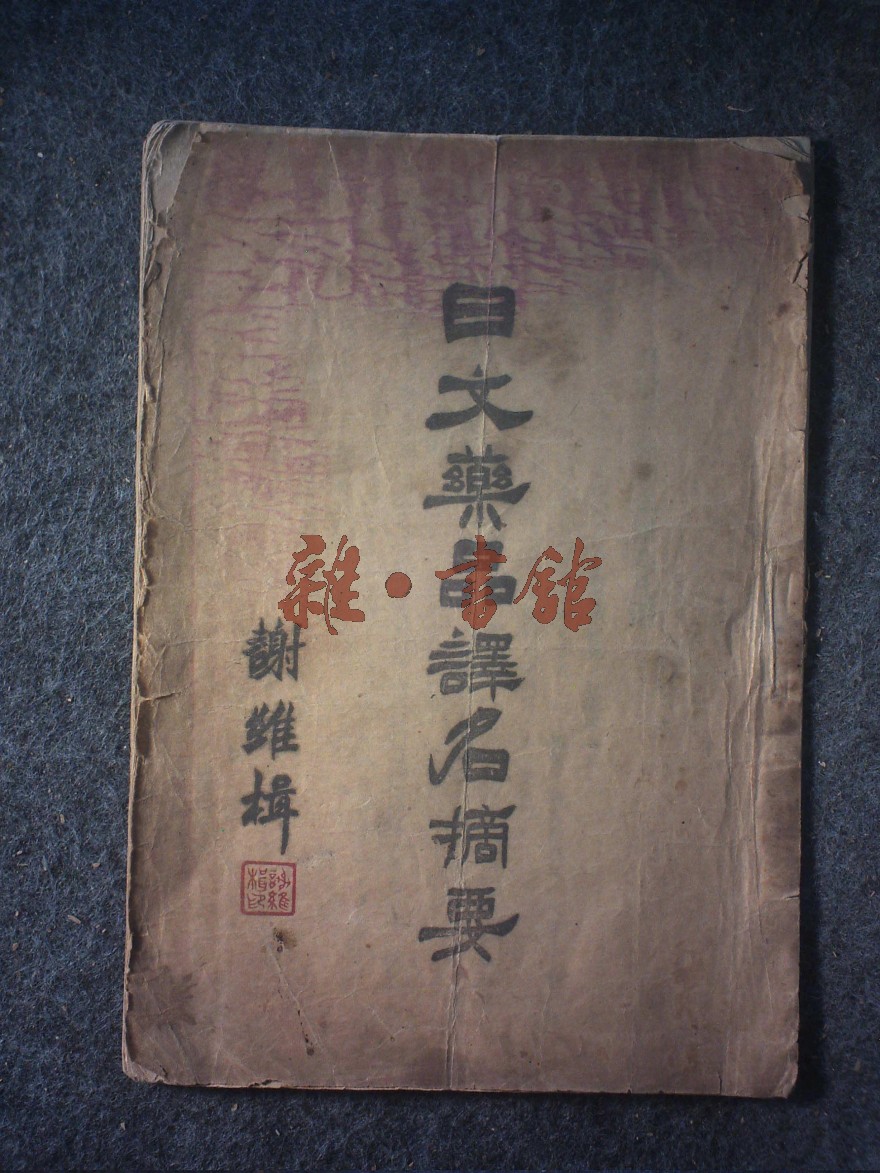 日文藥品譯名摘要
謝維楫
謝維楫印
雜·書館